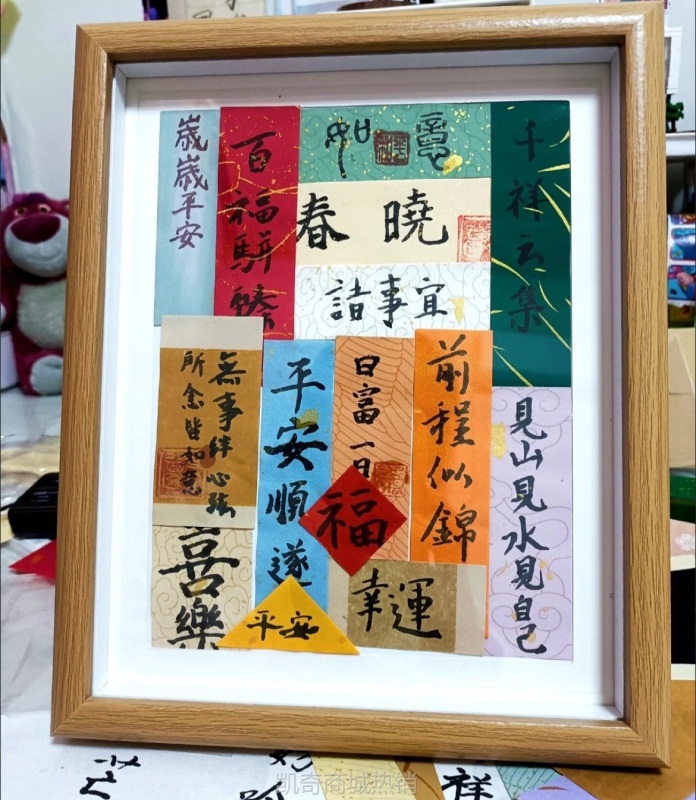 歲歲平安
百福駢臻
如意
春曉
諸事宜
千祥云集
無事絆心弦
所念皆如意
平安順遂
日富一日
前程似錦
見山見水見自己
福
喜樂
平安
幸運
祥
凯奇商城热销